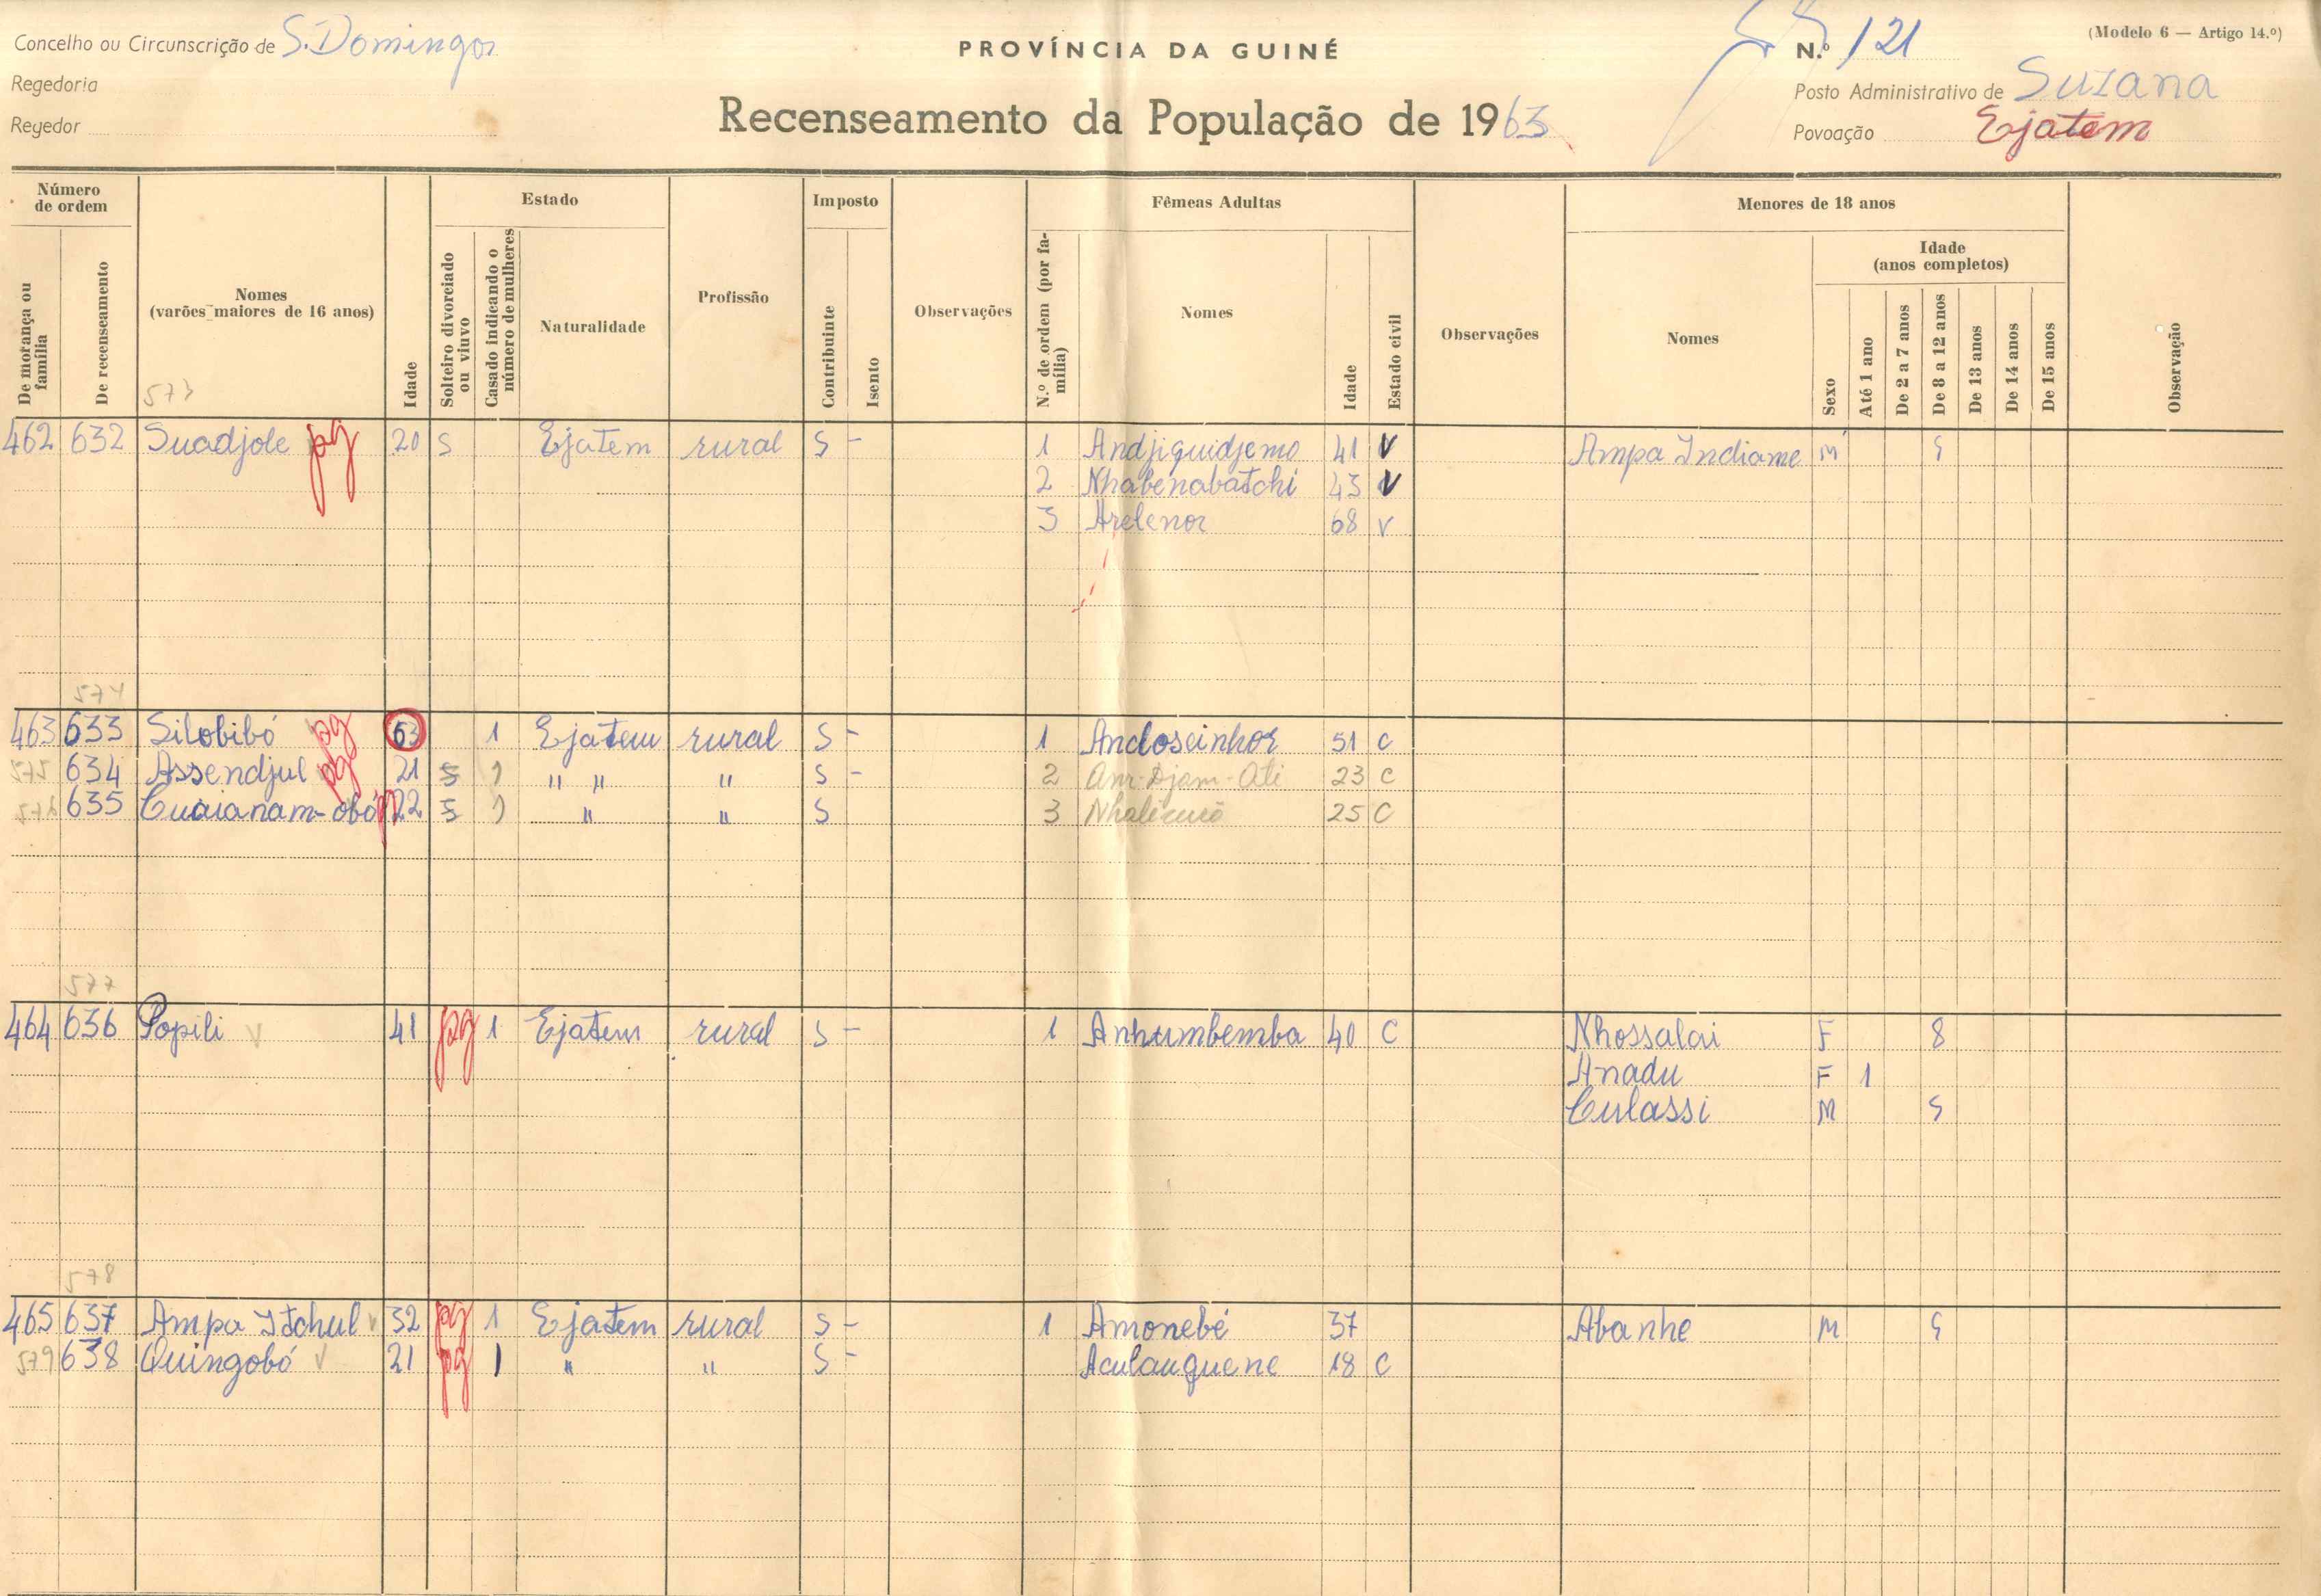 Concelho ou Circunscrição de S. Domingos
PROVÍNCIA DA GUINÉ
N.º 121
(Modelo 6 — Artigo 14.º)
Regedoria
Posto Administrativo de Suzana
Regedor
Recenseamento da População de 1963
Povoação Ejatem
Número de ordem
De morança ou família
De recenseamento
Nomes
(varões maiores de 16 anos)
573
Idade
Estado
Solteiro divorciado ou viuvo
Casado indicando o número de mulheres
Naturalidade
Profissão
Imposto
Contribuinte
Isento
Observações
Fêmeas Adultas
N.º de ordem (por família)
Nomes
Idade
Estado civil
Observações
Menores de 18 anos
Nomes
Sexo
Idade
(anos completos)
Até 1 ano
De 2 a 7 anos
De 8 a 12 anos
De 13 anos
De 14 anos
De 15 anos
Observação
462 632 Suadjole pg 20 S Ejatem rural S - 1 Andjiguidjemo 41 V Ampa Indiame M 9
2 Nhabenabatchi 43 V
3 Arelenor 68 V
574
463 633 Silobibó pg 63 1 Ejatem rural S - 1 Andoseinhor 51 C
575 634 Assendjul pg 21 S 1 " " " S - 2 Anr-Djam-Ati 23 C
576 635 Cuaianam-obó 22 S 1 " " S 3 25 C
577
464 636 Popili V 41 pg 1 Ejatem rural S - 1 Anhumbemba 40 C Nhossalai F 8
Anadu F 1
Culassi M 9
578
465 637 Ampa Itchul V 32 pg 1 Ejatem rural S - 1 Amonebé 37 Abanhe M 9
579 638 Quingobó V 21 pg 1 " " S - Aculauguene 18 C